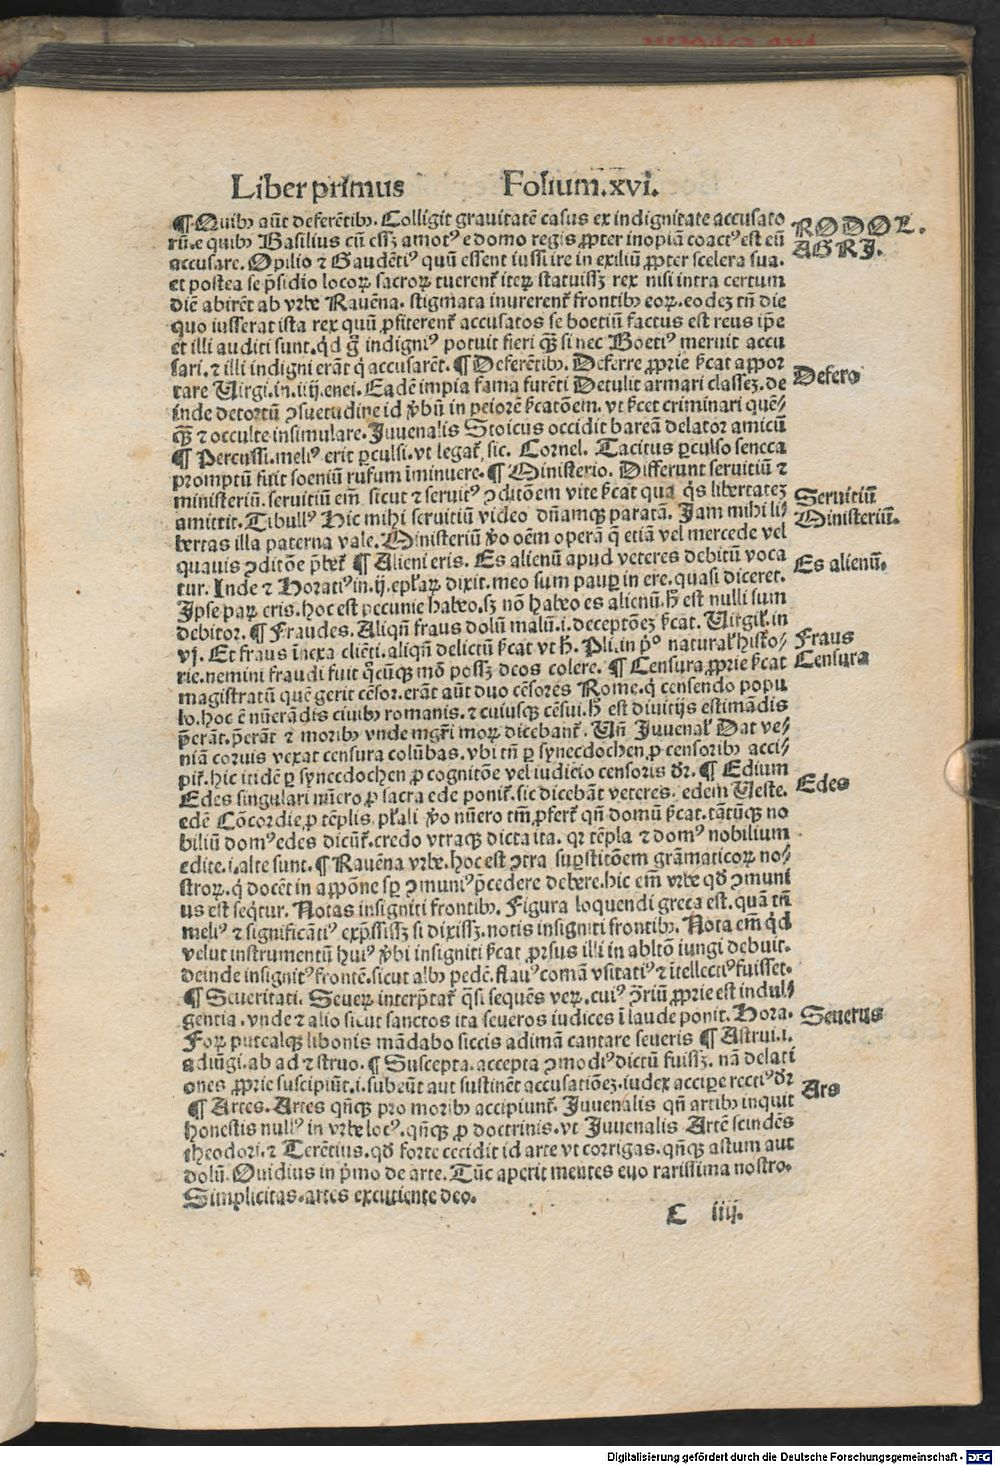 Liber primus Folium.xvi.
¶ Quibꝰ aūt deferētibꝰ. Colligit grauitatē casus ex indignitate accusato
rū. e quibꝰ Basilius cū essꝫ amotꝰ e domo regis ꝓpter inopiā coactꝰ est eū
accusare. Opilio ⁊ Gaudētiꝰ quū essent iussi ire in exiliū ꝓpter scelera sua.
et postea se p̄sidio locoꝝ sacroꝝ tuerent᷑ iteꝝ statuissꝫ rex nisi intra certum
diē abirēt ab vrbe Rauēna. stigmata inurerent᷑ frontibꝰ eoꝝ. eodeꝫ tn̄ die
quo iusserat ista rex quū ꝓfiterent᷑ accusatos se boetiū factus est reus ip̄e
et illi auditi sunt. qd̓ g̊ indigniꝰ potuit fieri qꝫ si nec Boetiꝰ meruit accu
sari. ⁊ illi indigni erāt q̇ accusarēt. ¶ Deferētibꝰ. Deferre ꝓprie ſcat apportare
tare Uirgi. in. iiij. enei. Eadē impia fama furēti Detulit armari classeꝫ. de
inde detortū ꝯsuetudine id v̓bū in peiorē ſcatōem. vt ſcet criminari quē⸗
qꝫ ⁊ occulte insimulare. Juuenalis Stoicus occidit bareā delator amicū
¶ Percussi. meliꝰ erit ꝑculsi. vt legat᷑ sic. Cornel. Tacitus ꝑculso seneca
promptū fuit soeniū rufum īminuere. ¶ Ministerio. Differunt seruitiū ⁊
ministeriū. seruitiū em̄ sicut ⁊ seruitꝰ ꝯditōem vite ſcat qua q̇s libertateꝫ
amittit. Tibullꝰ Hic mihi seruitiū video dn̄amqꝫ paratā. Jam mihi li⸗
bertas illa paterna vale. Ministeriū v̓o oēm operā q̄ etiā vel mercede vel
quauis ꝯditōe p̄bet᷑ ¶ Alieni eris. Es alienū apud veteres debitū voca
tur. Inde ⁊ Horatiꝰ in. ij. epl̓aꝝ dixit. meo sum pauꝑ in ere. quasi diceret.
Ipse paꝝ eris. hoc est pecunie habeo. sꝫ nō habeo es alienū. h̄ est nulli sum
debitor. ¶ Fraudes. Aliqn̄ fraus dolū malū. i. deceptōeꝫ ſcat. Uirgil̓. in
vj. Et fraus īnexa cliēti. aliqn̄ delictū ſcat vt h̄. Pli. in p̊ natural̓ histo⸗
rie. nemini fraudi fuit q̊cūqꝫ mō possꝫ deos colere. ¶ Censura ꝓprie ſcat
magistratū quē gerit cēsor. erāt aūt duo cēsores Rome. q̇ censendo popu
lo. hoc ē nūerādis ciuibꝰ romanis. ⁊ cuiusqꝫ cēsui. h̄ est diuitijs estimādis
p̄erāt. p̄erāt ⁊ moribꝰ vnde mgr̄i moꝝ dicebant᷑. Un̄ Juuenal̓ Dat ve⸗
niā coruis vexat censura colūbas. vbi tn̄ ꝑ synecdochen ꝓ censoribꝰ acci⸗
pit᷑. hic itidē ꝑ synecdochen ꝓ cognitōe vel iudicio censoris dr̄. ¶ Edium
Edes singulari nūero ꝓ sacra ede ponit᷑. sic dicebāt veteres. edem Ueste.
edē Cōcordie ꝓ tēplis. pl̓ali v̓o nūero tm̄ ꝓfert᷑ qn̄ domū ſcat. tātūqꝫ no
biliū domꝰ edes dicūt᷑. credo vtraqꝫ dicta ita. qꝛ tēpla ⁊ domꝰ nobilium
edite. i. alte sunt. ¶ Rauēna vrbe. hoc est ꝯtra suꝑstitōem grāmaticoꝝ no⸗
stroꝝ. q̇ docēt in appōne sꝑ ꝯmuniꝰ p̄cedere debere. hic em̄ vrbe qd̓ ꝯmuni
us est seqt᷑ur. Notas insigniti frontibꝰ. Figura loquendi greca est. quā tn̄
meliꝰ ⁊ significātiꝰ exp̄ssissꝫ si dixissꝫ. notis insigniti frontibꝰ. Nota em̄ qd̓
velut instrumentū huiꝰ v̓bi insigniti ſcat ꝓrsus illi in abltō iungi debuit.
deinde insignitꝰ frontē. sicut albꝰ pedē. flauꝰ comā vsitatiꝰ ⁊ ītellectiꝰ fuisset.
¶ Seueritati. Seueꝝ interp̄tat᷑ q̄si sequēs veꝝ. cuiꝰ ꝯ̄riū ꝓprie est indul⸗
gentia. vnde ⁊ alio sicut sanctos ita seueros iudices ī laude ponit. Hora.
Foꝝ putealqꝫ libonis mādabo siccis adimā cantare seueris ¶ Astrui. i.
adiūgi. ab ad ⁊ struo. ¶ Suscepta. accepta ꝯmodiꝰ dictū fuissꝫ. nā delati
ones ꝓprie suscipiūt. i. subeūt aut sustinēt accusatiōeꝫ. iudex acciꝑe rectiꝰ dr̄
¶ Artes. Artes qn̄qꝫ pro moribꝰ accipiunt᷑. Juuenalis qn̄ artibꝰ inquit
honestis nullꝰ in vrbe locꝰ. qn̄qꝫ ꝓ doctrinis. vt Juuenalis Artē scindēs
theodori. ⁊ Terētius. qd̓ forte cecidit id arte vt corrigas. qn̄qꝫ astum aut
dolū. Ouidius in p̓mo de arte. Tūc aperit mentes euo rarissima nostro.
Simplicitas. artes excutiente deo.
C iiij.
RODOL.
AGRI.
Defero
Seruitiū
Ministeriū.
Es alienū.
Fraus
Censura
Edes
Seuerus
Ars
Digitalisierung gefördert durch die Deutsche Forschungsgemeinschaft - DFG